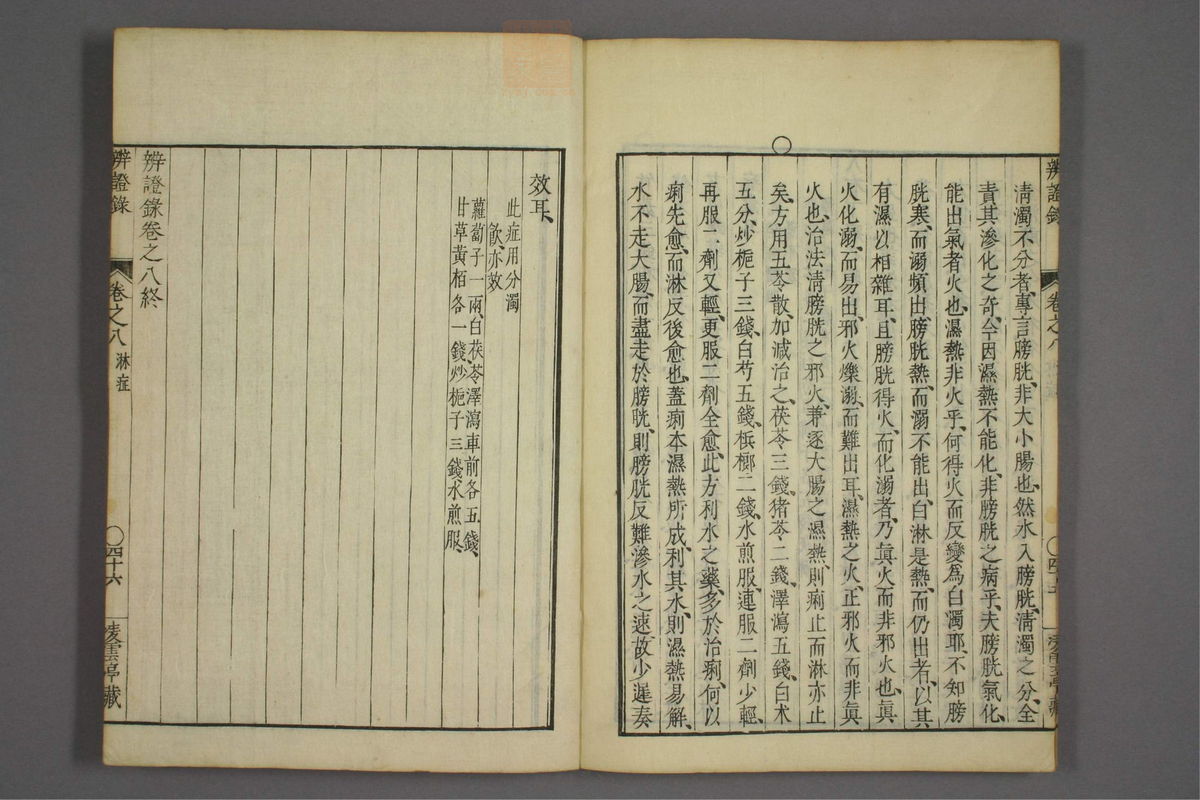 辨證錄
卷之八
清濁不分者、專言膀胱、非大小腸也、然水入膀胱、清濁之分、全
責其滲化之奇、今因濕熱不能化、非膀胱之病乎、夫膀胱氣化、
能出氣者火也、濕熱非火乎、何得火而反變為白濁耶、不知膀
胱寒、而溺頻出、膀胱熱、而溺不能出、白淋是熱、而仍出者、以其
有濕以相雜耳、且膀胱得火、而化溺者、乃眞火而非邪火也、眞
火化溺、而易出、邪火爍溺、而難出耳、濕熱之火、正邪火而非眞
火也、治法清膀胱之邪火、兼逐大腸之濕熱、則痢止而淋亦止
矣、方用五苓散、加減治之、茯苓三錢、猪苓二錢、澤瀉五錢、白术
五分、炒梔子三錢、白芍五錢、檳榔二錢、水煎服、連服二劑少輕、
再服二劑又輕、更服二劑全愈、此方利水之藥、多於治痢、何以
痢先愈、而淋反後愈也、蓋痢本濕熱所成、利其水、則濕熱易解、
水不走大腸、而盡走於膀胱、則膀胱反難滲水之速、故少遲奏
效耳、
此症用分濁
飲、亦效
蘿蔔子一兩、白茯苓澤瀉車前各五錢、
甘草黃栢各一錢、炒梔子三錢、水煎服、
辨證錄卷之八終
辨證錄
卷之八
淋症
○四十六
凌雲亭藏